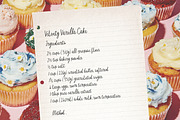 Velvety Vanilla Cake
Ingredients:
2¾ cups all purpose flour
2½ tsp baking powder
½ tsp salt
1 cup unsalted butter, softened
1¾ cups granulated sugar
4 large eggs, room temperature
1 tbsp pure vanilla extract
1 cup (240ml) whole milk, room temperature
Method: